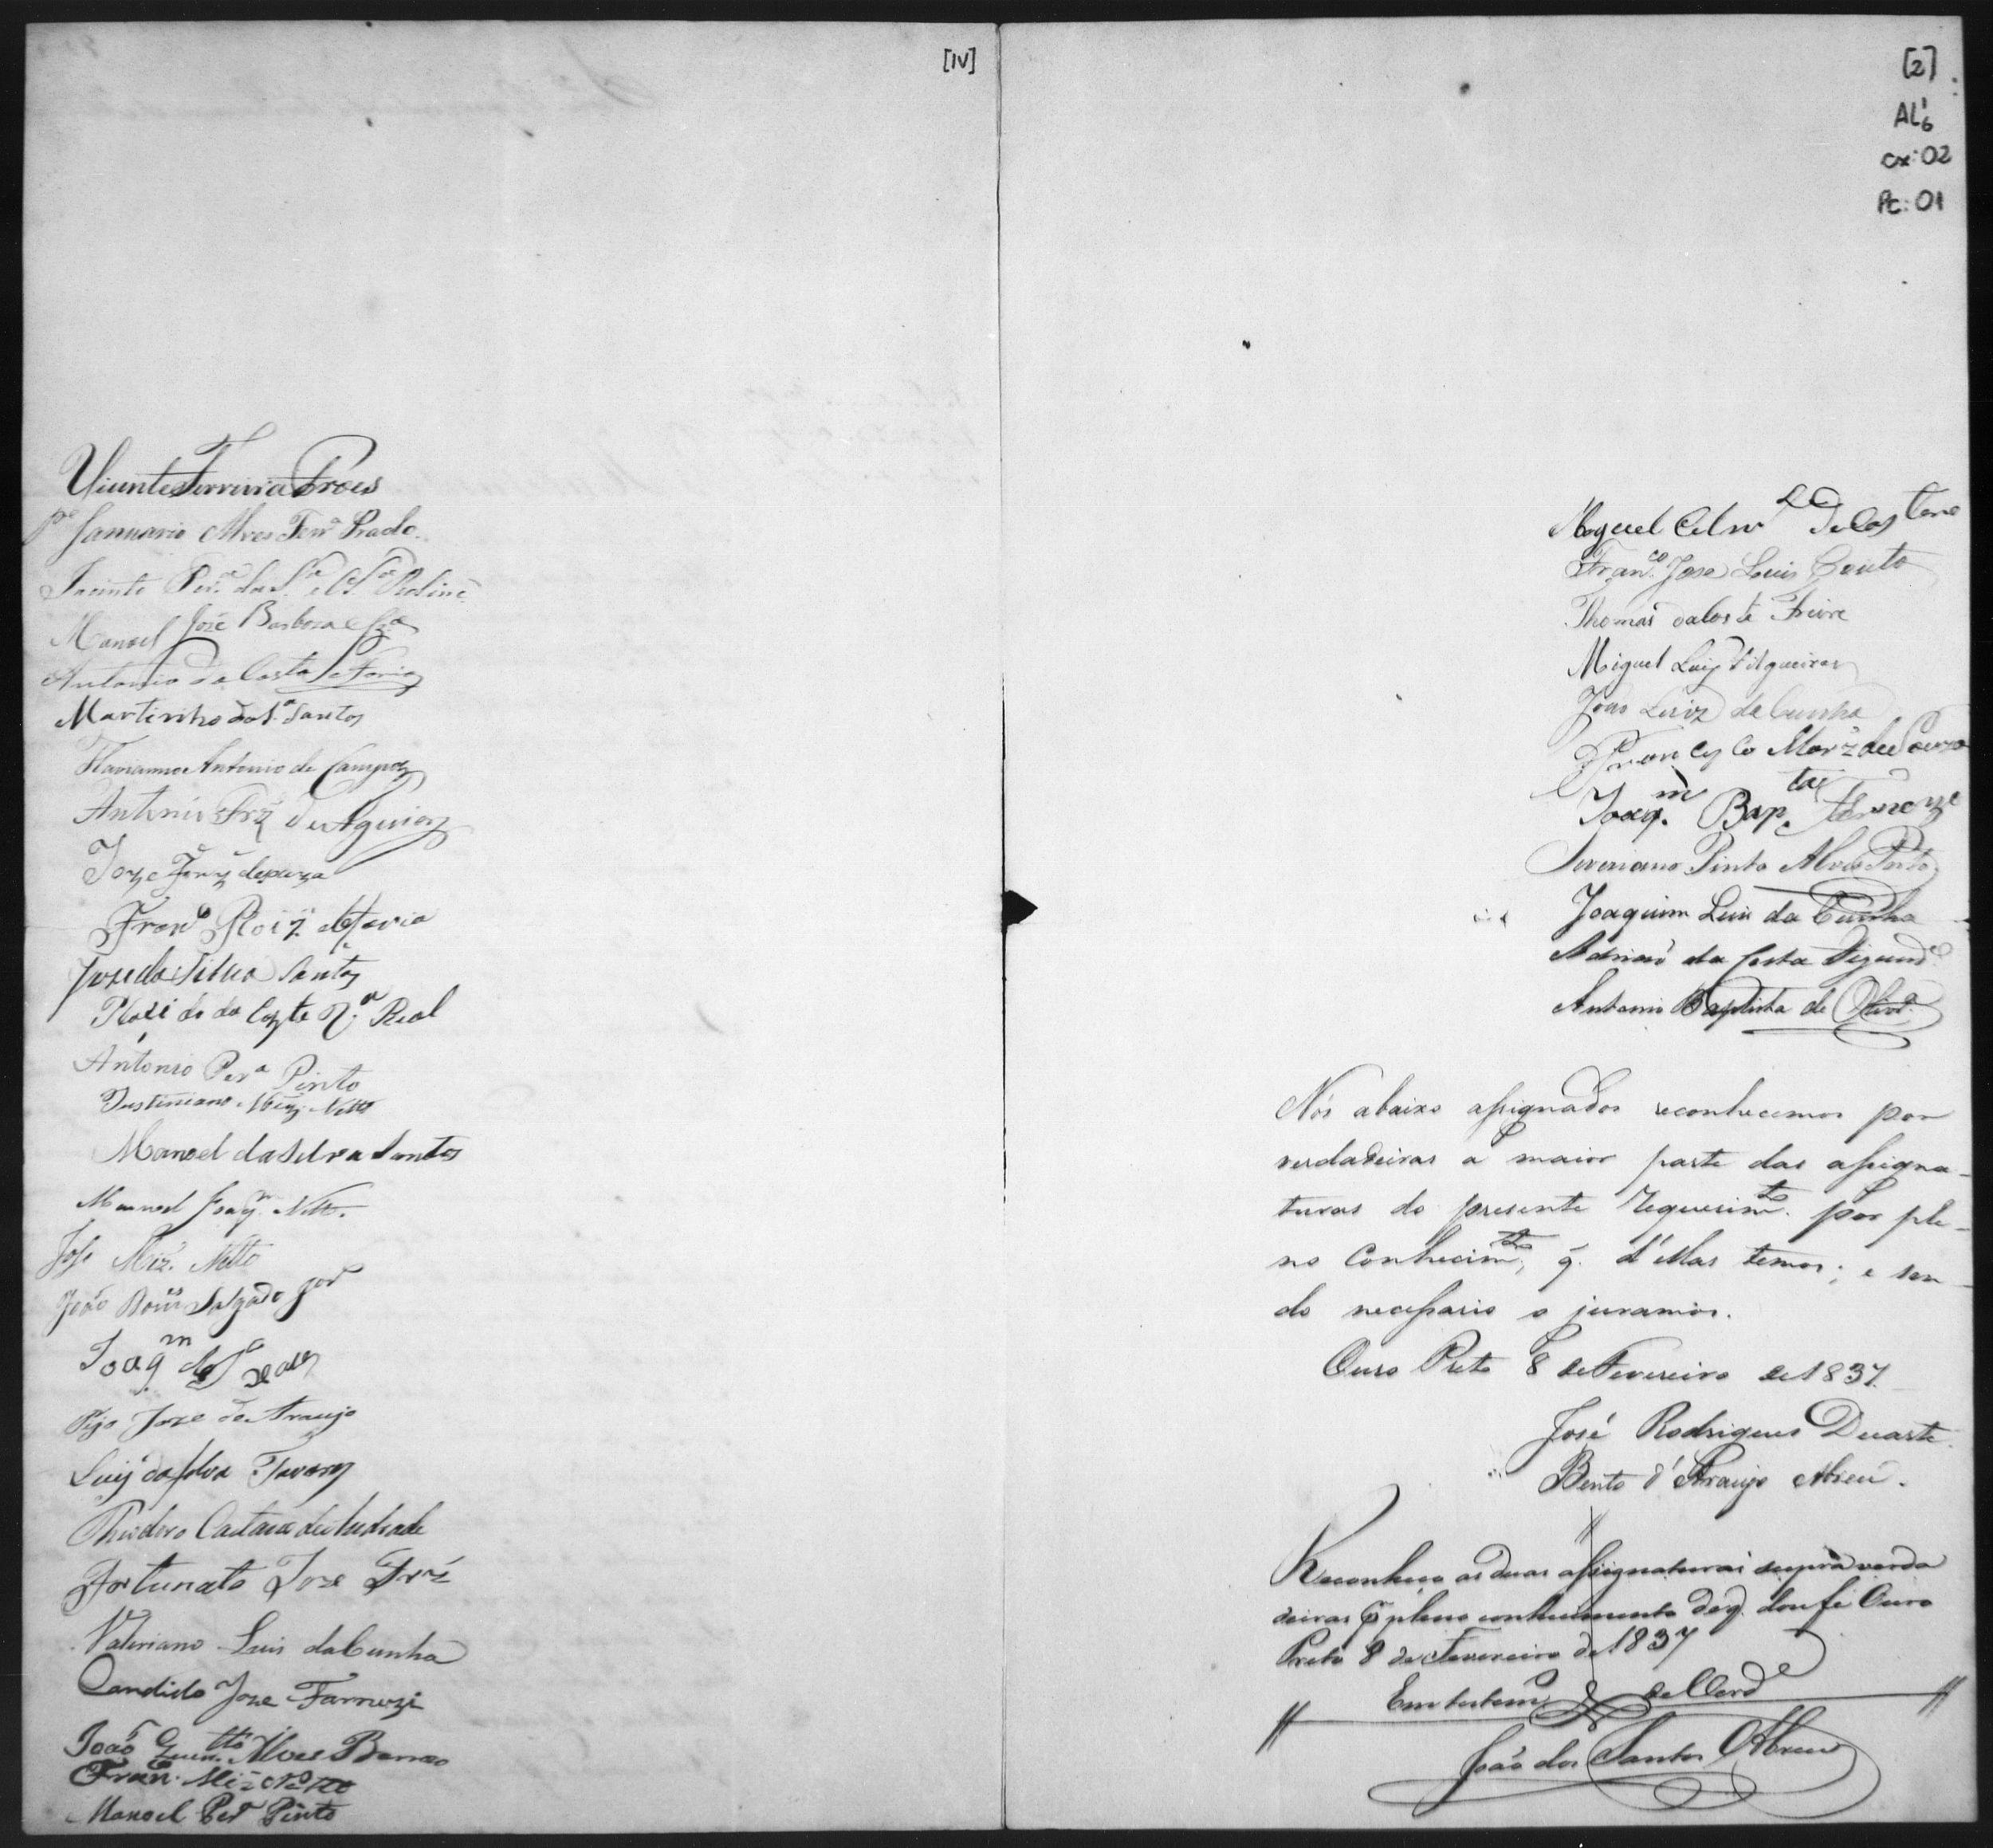 [IV]
Vicente Ferreira Froes
Pe Januario Alves Ferra Prado
Jacinto Per.a da S.a
Manoel José Barboza e Sza
Antonio da Costa e Faria
Martinho da S.a Santos
Flavianno Antonio de Campos
Antonio Frz de Aguiar
Joze
Franco Roiz de Faria
Joze da Silva Santos
da Coste R.a Real
Antonio Per.a Pinto
Justiniano Netto
Manoel da Silva Santos
Manoel Joaq.m Netto.
Joze Miz. Netto
João Salgado
Joaq.m de
Joze de Araujo
Luiz da Silva Tavares
Theodoro Caetano de Andrade
Fortunato Joze Frz
Valeriano Luis da Cunha
Candido Joze Farnezi
João Alves Barrozo
Fran.co Miz Netto
Manoel Per.a Pinto
[2]
AL 1 6
cx: 02
Pc: 01
Miguel de
Fran.co Joze Luis Couto
Thomas da Coste Freire
Miguel Luiz Filgueiras
João Luiz da Cunha
Francisco de Souza
Joaq.m Bap.ta
Severiano Pinto Alves Pinto
Joaquim Luis da Cunha
Adriaõ da Costa
Antonio Baptista de Olivr.a
Nós abaixo assignados reconhecemos por
verdadeiras a maior parte das assigna-
turas do presente requerim.to por ple-
no conhecim.to, q. d'ellas temos; e sen-
do necessario o juramos.
Ouro Preto 8 de Fevereiro de 1837.
José Rodrigues Duarte.
Bento d'Araujo Abreu.
Reconheço as duas assignaturas supra verda
deiras p pleno conhecimento de q. dou fé Ouro
Preto 8 de Fevereiro de 1837
Em testem.o de Verd.e
João dos Santos Abreu